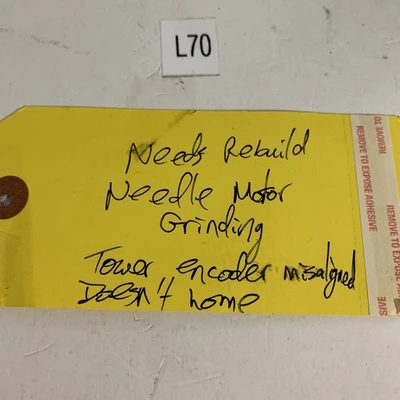 L70
Needs Rebuild
Needle Motor
Grinding
Tower encoder misaligned
Doesn't home
REMOVE TO EXPOSE ADHESIVE
REMOVE TO EXPOS
REMOVE TO
SIVE